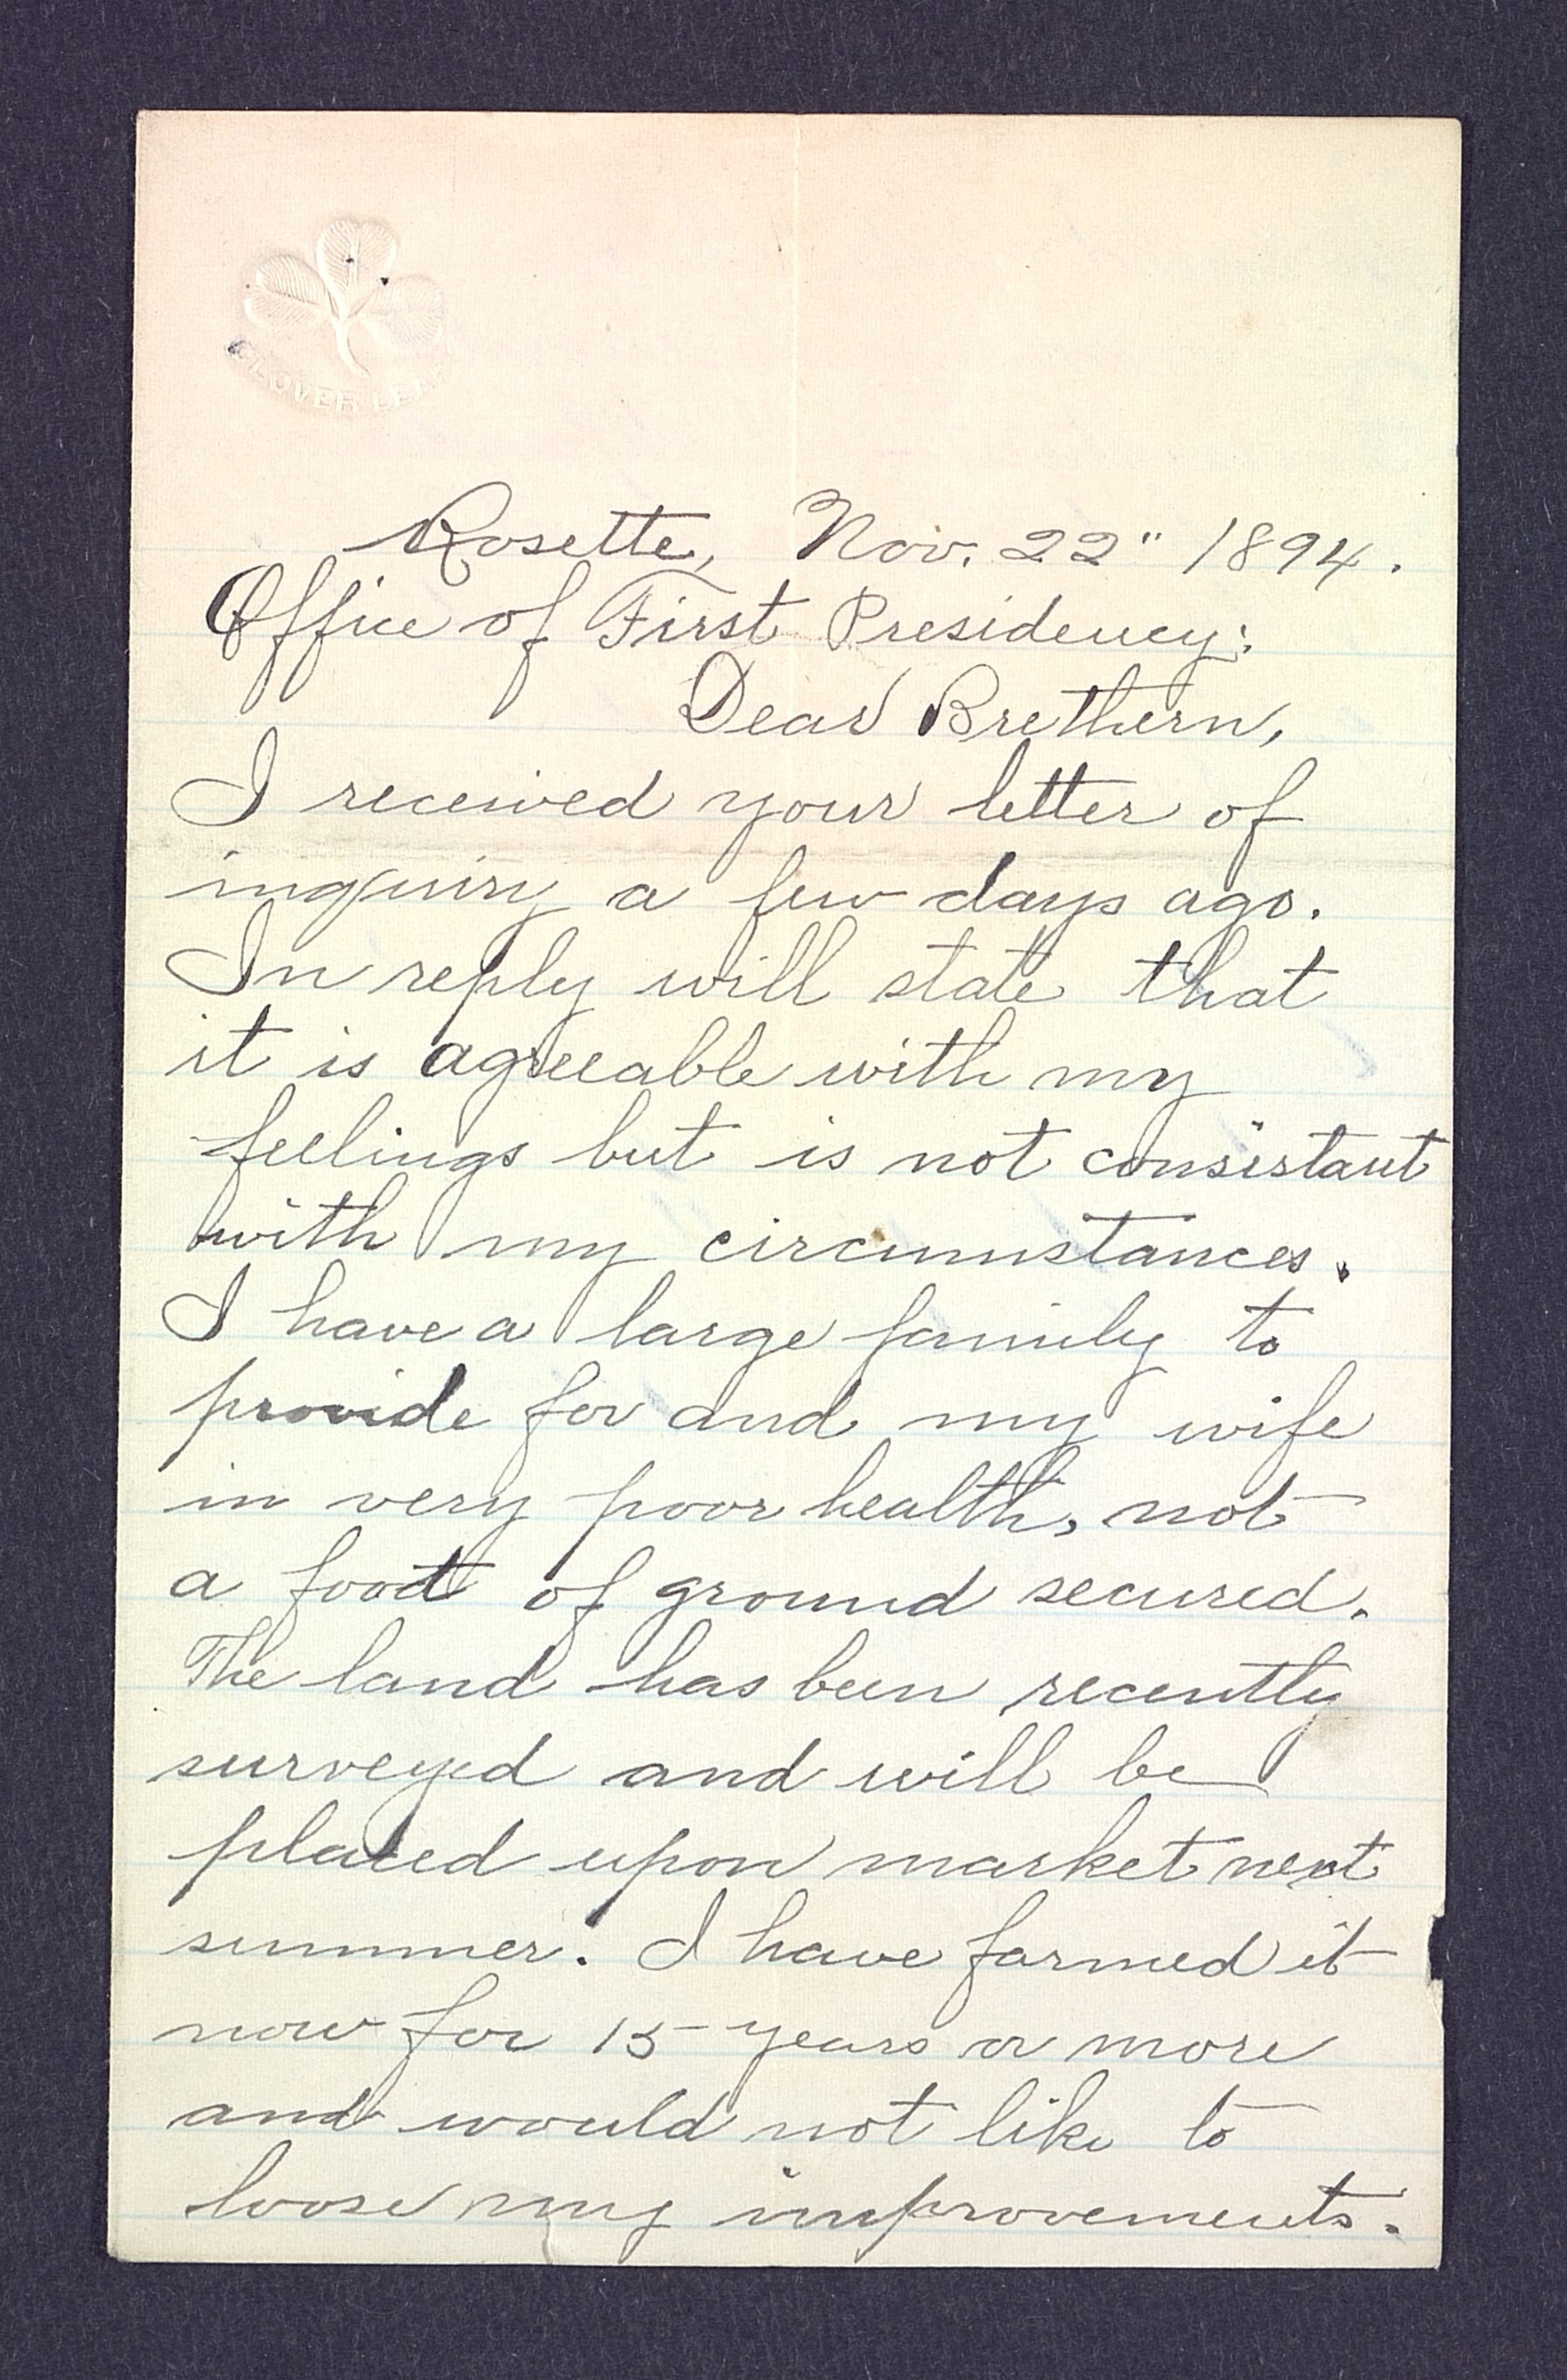 CLOVER LEAF
Rosette, Nov. 22" 1894.
Office of First Presidency:
Dear Brethern,
I received your letter of
inquiry a few days ago.
In reply will state that
it is agreeable with my
feelings but is not consistant
with my circumstances.
I have a large family to
provide for and my wife
in very poor health, not
a foot of ground secured.
The land has been recently
surveyed and will be
placed upon market next
summer. I have farmed it
now for 15 years or more
and would not like to
loose my improvements.